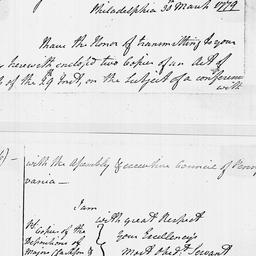 Philadelphia 30th March 1779
Have the Honor of transmitting to your
herewith enclos'd two Copies of an Act of
of the 29th Inst, on the Subject of a conference
with
with the Assembly & executive Council of Penn
vania —
I am
with great Respect
Your Excellency's
Most Obedt. Servant
Copies of the
Depositions of
Major Jackson &